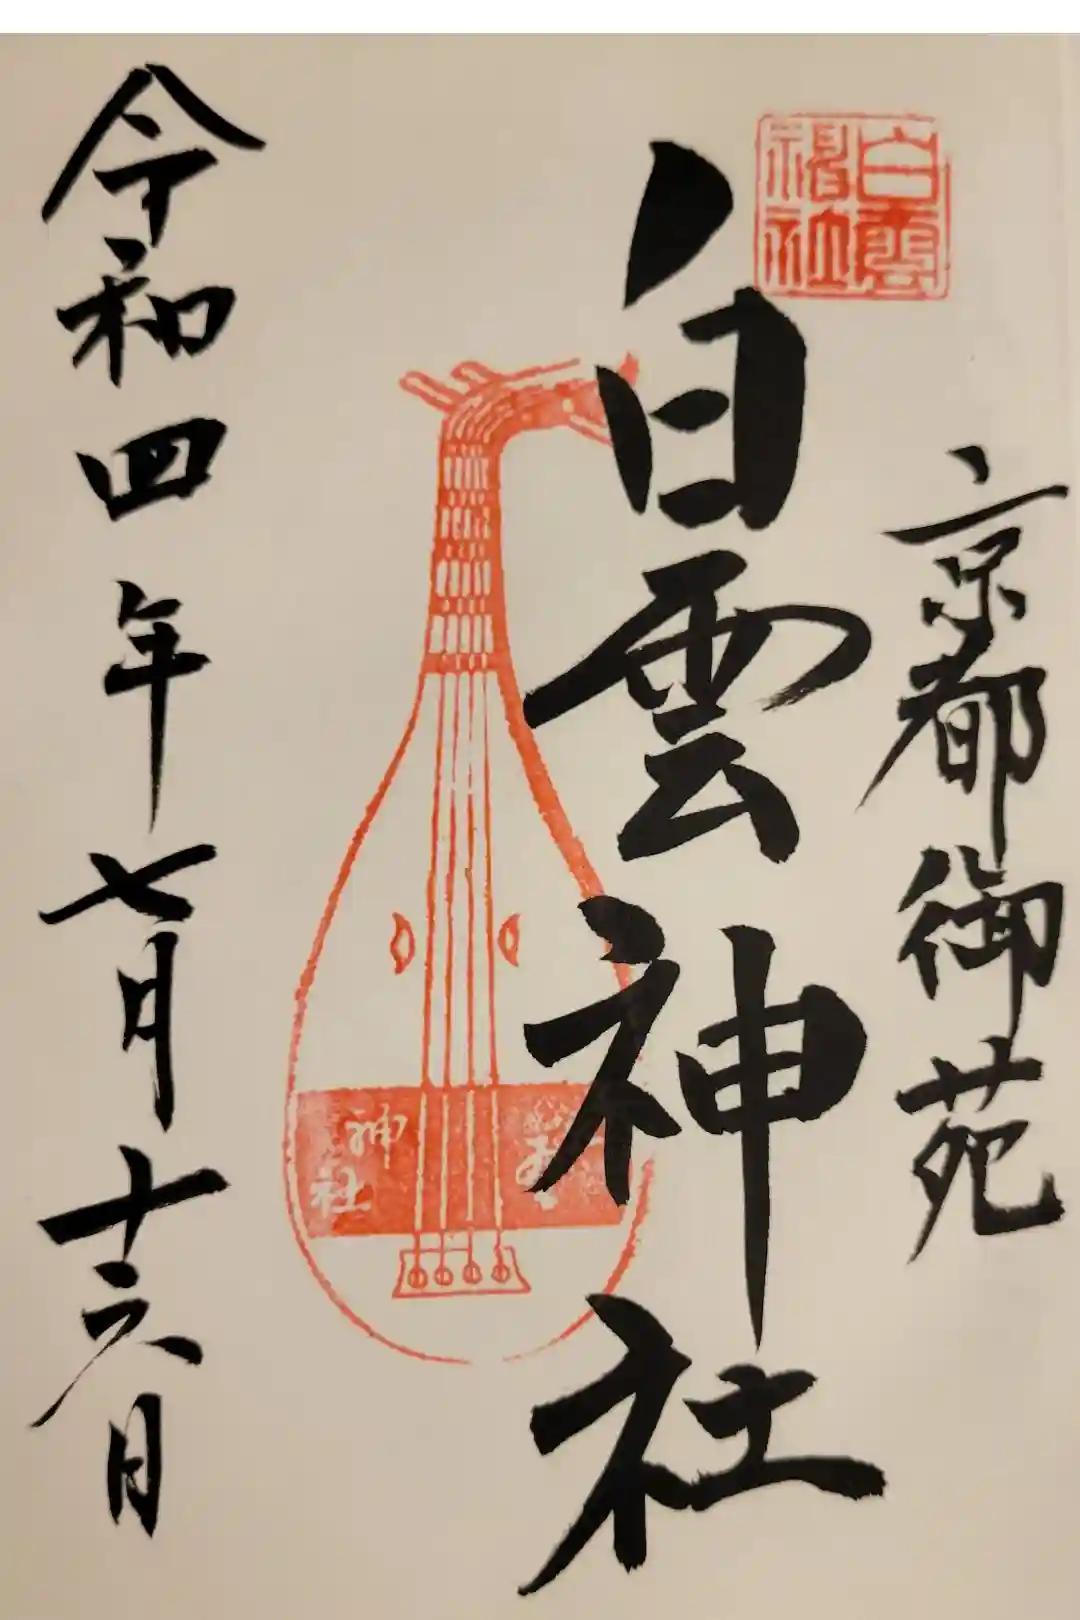 京都御苑
白雲
神社
白雲神社
神社
令和四年七月十六日